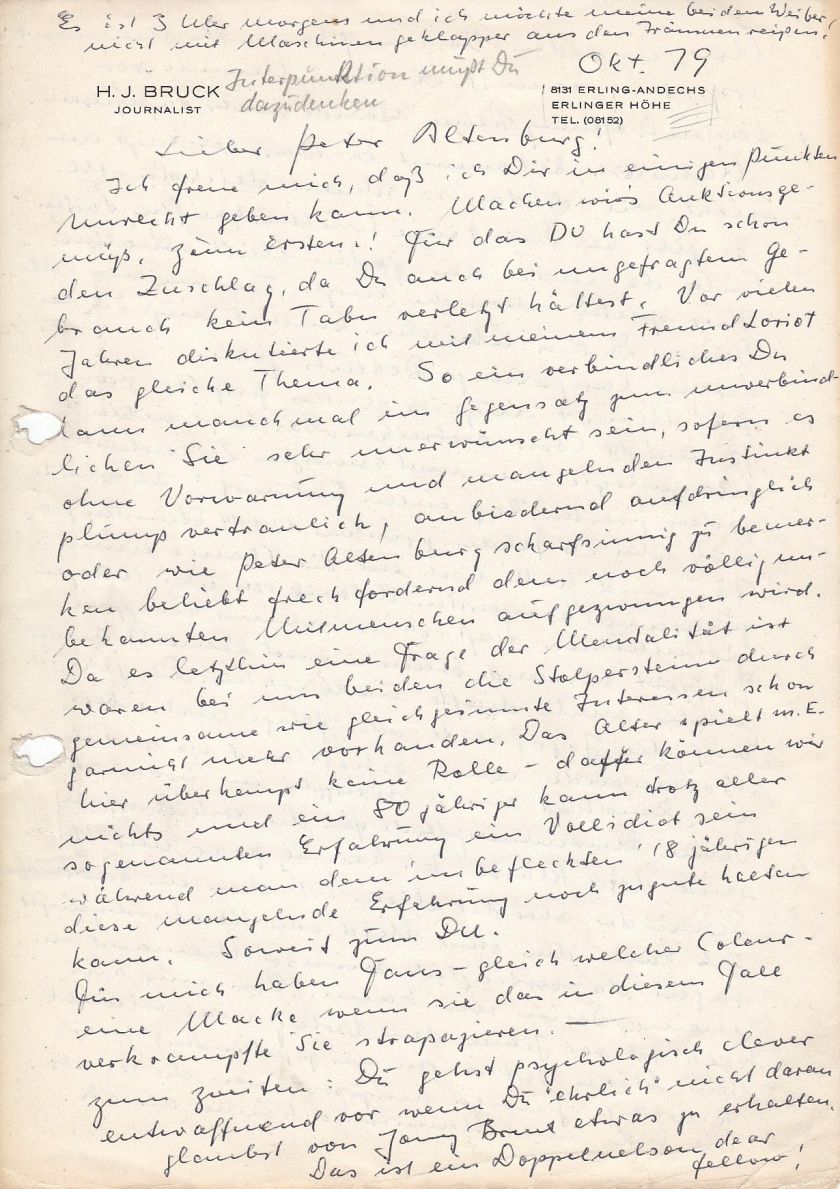 Es ist 3 Uhr morgens und ich möchte meine beiden Weiber!
nicht mit Maschinengeklapper aus den Träumen reißen!
Okt. 79
Interpunktion mußt Du
dazudenken
H. J. BRUCK
JOURNALIST
8131 ERLING-ANDECHS
ERLINGER HÖHE
TEL. (08152)
Lieber Peter Altenburg!
Ich freue mich, daß ich Dir in einigen Punkten
unrecht geben kann. Machen wir's Auktionsge-
mäß, zum Ersten:! Für das DU hast Du schon
den Zuschlag, da Du auch bei ungefragtem Ge-
brauch kein Tabu verletzt hättest. Vor vielen
Jahren diskutierte ich mit meinem Freund Loriot
das gleiche Thema. So ein verbindliches Du
kann manchmal im Gegensatz zum unverbind-
lichen "Sie" sehr unerwünscht sein, sofern es
ohne Vorwarnung und mangelnden Instinkt
plump vertraulich, anbiedernd aufdringlich
oder wie Peter Altenburg scharfsinnig zu bemer-
ken beliebt frech fordernd dem noch völlig un-
bekannten Mitmenschen aufgezwungen wird.
Da es letzthin eine Frage der Mentalität ist
waren bei uns beiden die Stolpersteine durch
gemeinsame wie gleichgesinnte Interessen schon
garnicht mehr vorhanden. Das Alter spielt m. E.
hier überhaupt keine Rolle - dafür können wir
nichts und ein 80 jähriger kann trotz aller
sogenannten Erfahrung ein Vollidiot sein
während man dem 'unbefleckten' 18 jährigen
diese mangelnde Erfahrung noch zugute halten
kann. Soweit zum DU.
Für mich haben Fans - gleich welcher Coleur -
eine Macke wenn sie das in diesem Fall
verkrampfte 'Sie' strapazieren. —
zum zweiten: Du gehst psychologisch clever
entwaffnend vor wenn Du "ehrlich" nicht daran
glaubst von Jonny Bruck etwas zu erhalten.
Das ist ein Doppelnelson dear
fellow!